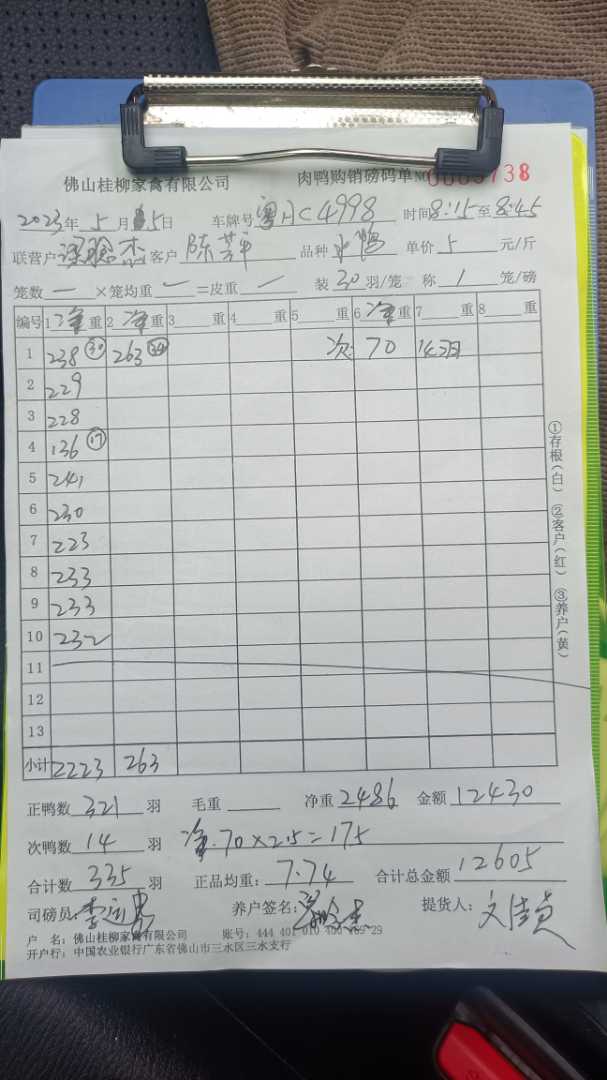 佛山桂柳家禽有限公司 肉鸭购销磅码单 № 0005738
2023年 5月 5日 车牌号 粤HC4998 时间 8:15 至 8:45
联营户 客户 陈 品种 水鸭 单价 5 元/斤
笼数 一 ×笼均重 一 =皮重 一 装 30 羽/笼 称 1 笼/磅
编号 1 净 重 2 净 重 3 重 4 重 5 重 6 净 重 7 重 8 重
1 238 (30) 263 (34) 次: 70 14羽
2 229
3 228
4 136 (17)
5 241
6 230
7 223
8 233
9 233
10 232
11
12
13
小计 2223 263
①存根(白) ②客户(红) ③养户(黄)
正鸭数 321 羽 毛重 净重 2486 金额 12430
次鸭数 14 羽 净.70×2.5=175
合计数 335 羽 正品均重: 7.74 合计总金额 12605
司磅员: 李 养户签名: 提货人: 文
户 名: 佛山桂柳家禽有限公司 账号: 444 401 010 400 29
开户行: 中国农业银行广东省佛山市三水区三水支行